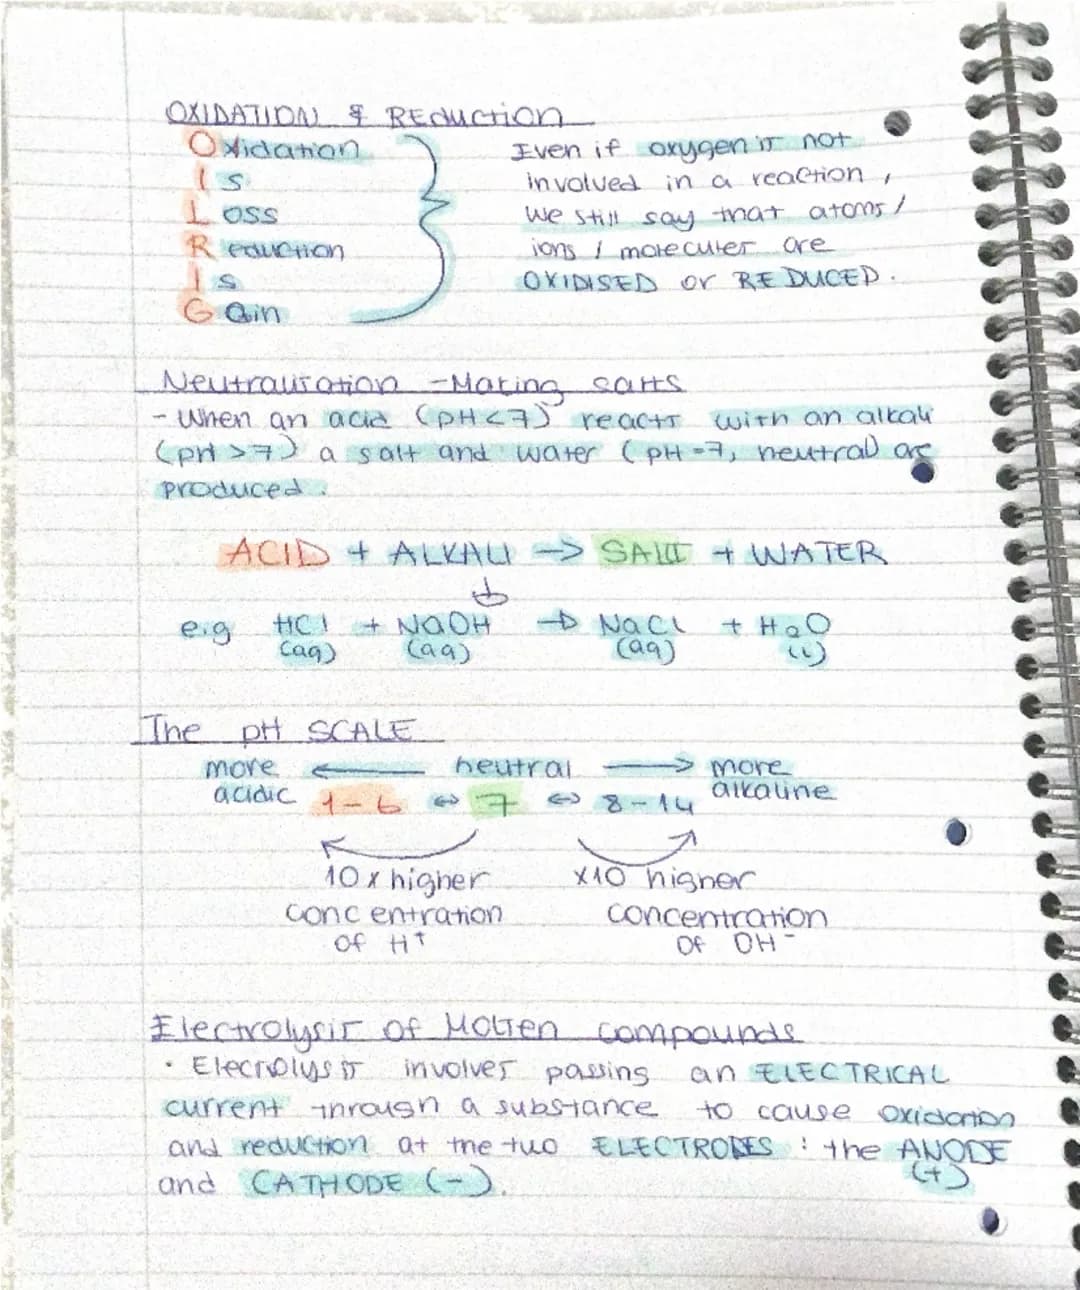 OXIDATION & REduction
Oxidation
Is
Loss
Reduction
Is
Gain
Even if oxygen is not
involved in a reaction,
we still say that atoms/
ions / molecules are
OXIDISED or REDUCED.
Neutralisation - Making salts
- When an acid (pH<7) reacts with an alkali
(pH >7) a salt and water (pH=7, neutral) are
produced.
ACID + ALKALI → SALT + WATER
↓
e.g HCl + NaOH → NaCl + H2O
(aq) (aq) (aq) (l)
The pH SCALE
more ← neutral → more
acidic 1-6 ⇔ 7 ⇔ 8-14 alkaline
10 x higher
concentration
of H+
x10 higher
concentration
of OH-
Electrolysis of Molten compounds
· Elecrolysis involves passing an ELECTRICAL
current through a substance to cause oxidation
and reduction at the two ELECTRODES : the ANODE
(+)
and CATHODE (-).